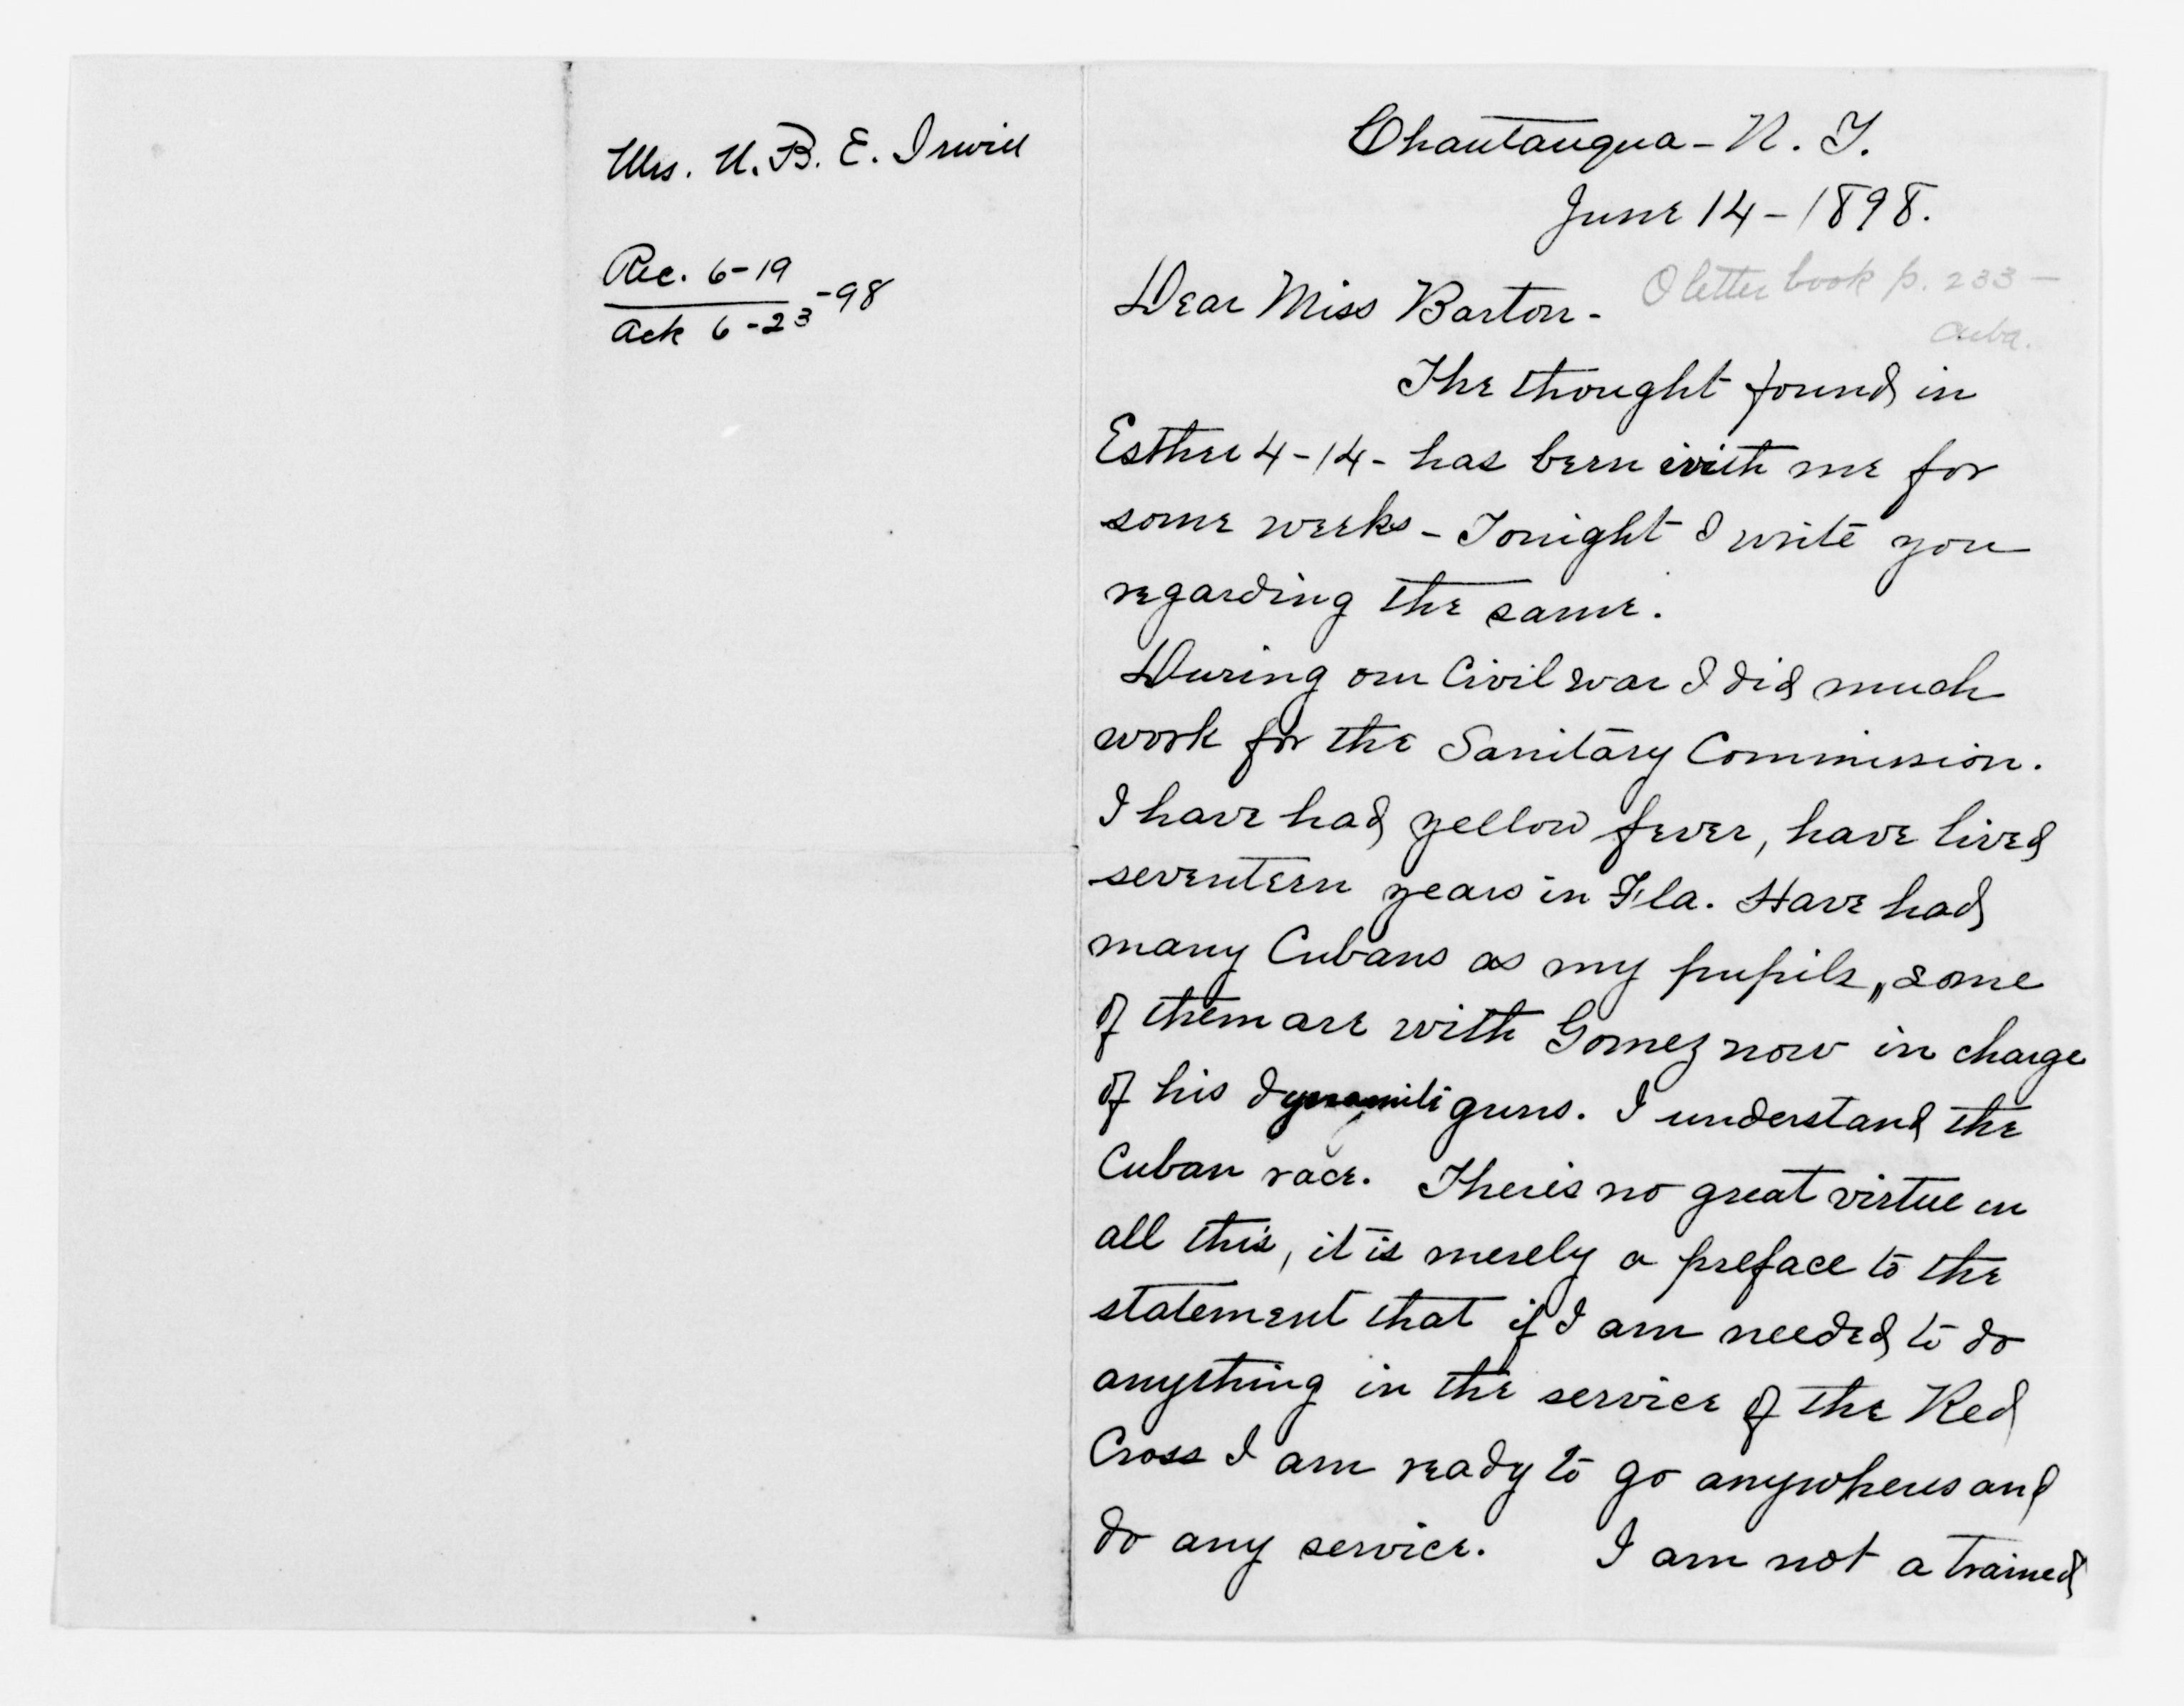 Mrs. U. B. E. Irwin
Rec. 6-19
-98
Ack 6-23
Chautauqua - N. Y.
June 14 - 1898.
O letter book p. 233 -
Cuba.
Dear Miss Barton -
The thought found in
Esther 4-14 - has been with me for
some weeks - Tonight I write you
regarding the same.
During our Civil war I did much
work for the Sanitary Commission.
I have had yellow fever, have lived
seventeen years in Fla. Have had
many Cubans as my pupils, some
of them are with Gomez now in charge
of his dynamite guns. I understand the
Cuban race. There is no great virtue in
all this, it is merely a preface to the
statement that if I am needed to do
anything in the service of the Red
Cross I am ready to go anywhere and
do any service. I am not a trained